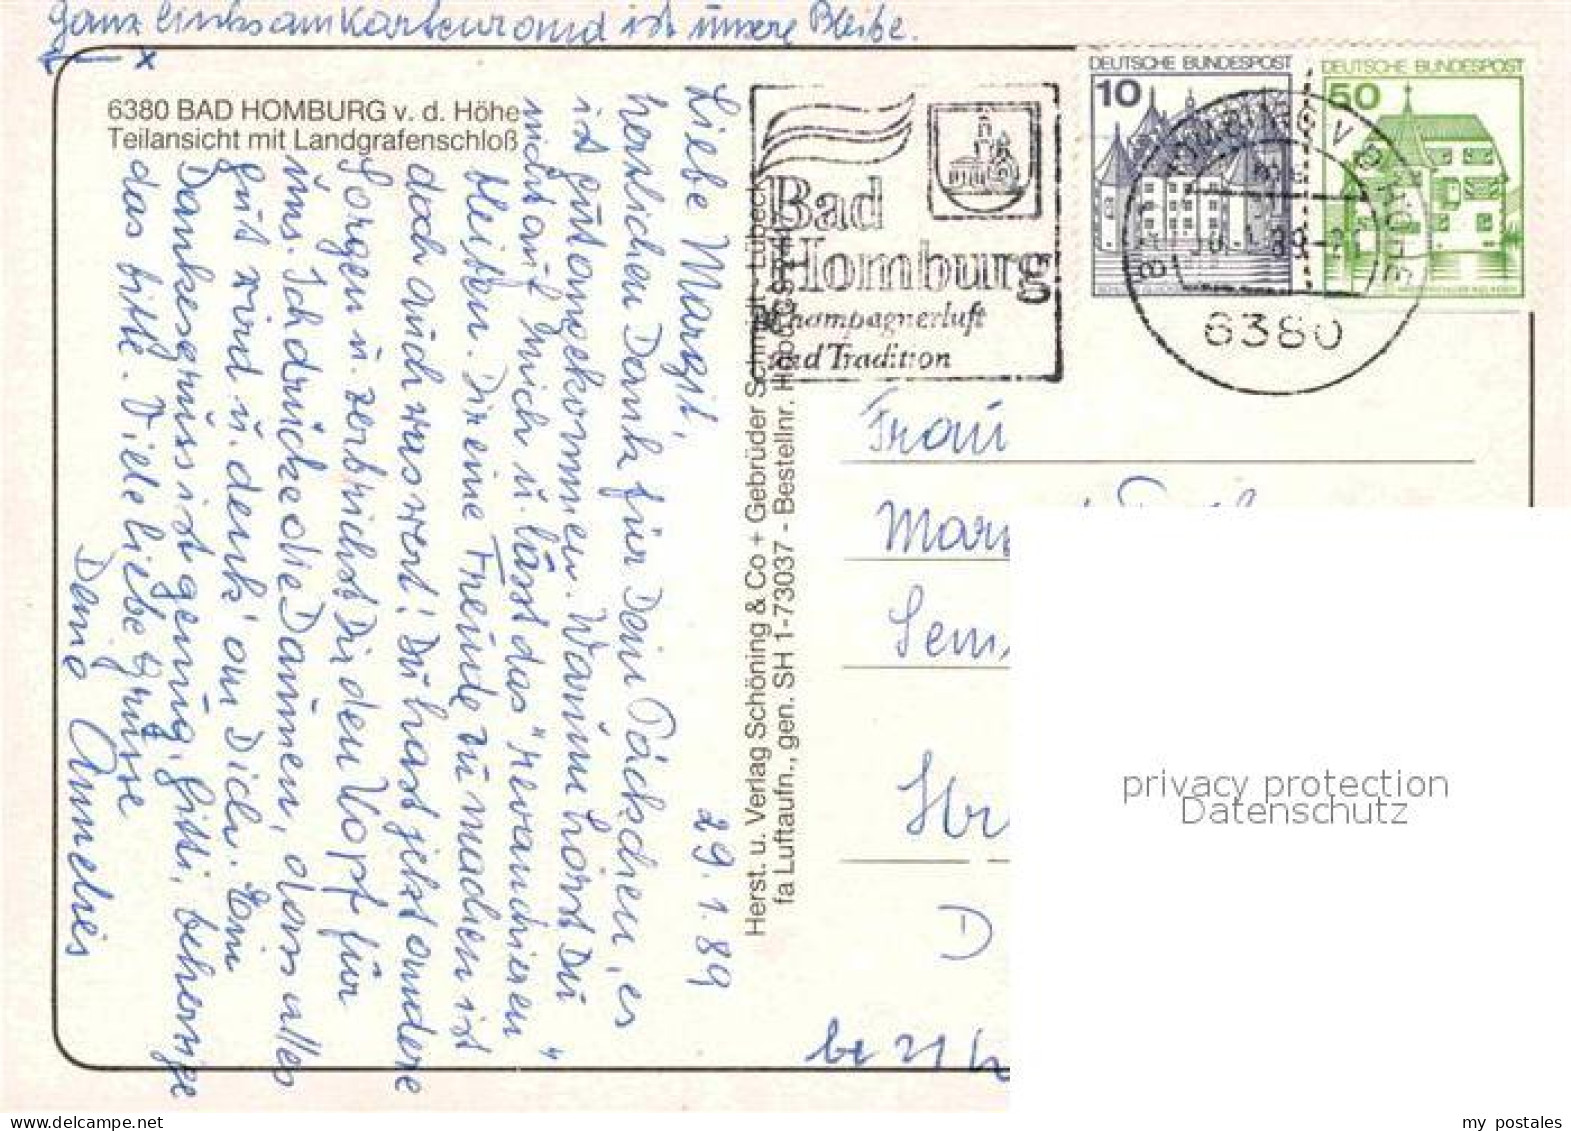 ganz links am Kartenrand ist unsere Bleibe.
← x
6380 BAD HOMBURG v. d. Höhe
Teilansicht mit Landgrafenschloß
29.1.89
Liebe Margit,
herzlichen Dank für Dein Päckchen, es
ist gut angekommen. Warum hörst Du
nicht auf mich u. lässt das "revanchieren"
bleiben. Dir eine Freude zu machen ist
doch auch was wert! Du hast jetzt andere
Sorgen u. zerbrichst Dir den Kopf für
uns. Ich drücke die Daumen, dass alles
gut wird u. denk' an Dich. Ein
Dankesgruss ist genug, bitte, beherzige
das bitte. Viele liebe Grüsse
Deine Annelies
Herst. u. Verlag Schöning & Co + Gebrüder Schmidt - Lübeck
fa Luftaufn., gen. SH 1-73037 - Bestellnr.
Bad
Homburg
Champagnerluft
und Tradition
DEUTSCHE BUNDESPOST
10
DEUTSCHE BUNDESPOST
50
HOMBURG V D HÖHE
6380
Frau
D
privacy protection
Datenschutz
my_postales